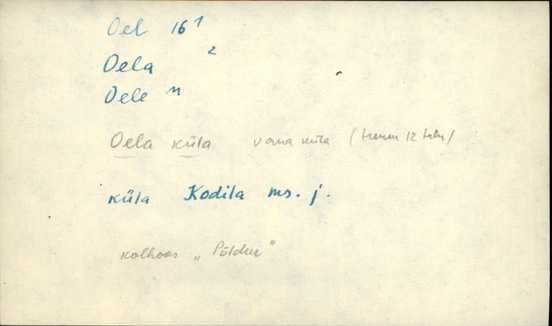 Oel 16¹
Oela ²
Oele n
Oela küla vana küla (
küla Kodila ms. j.
kolhoos „Põldur"